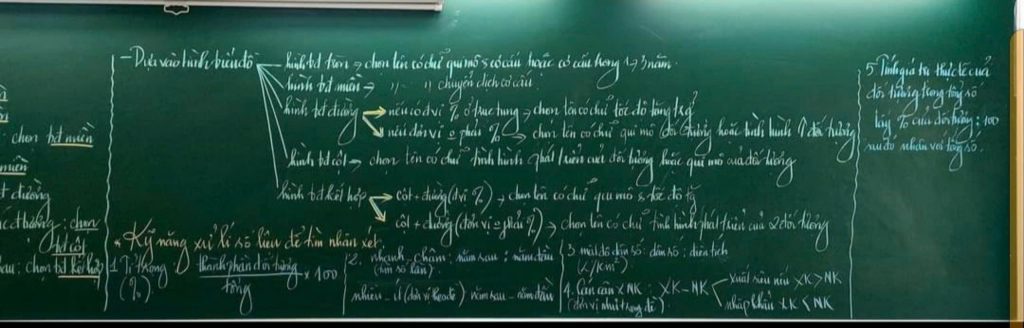 : chọn bđ miền
miền
t đường
: chọn
bđ cột
sau : chọn bđ kết hợp
- Dựa vào hình biểu đồ
hình bđ tròn → chọn tên có chữ qui mô & cơ cấu hoặc cơ cấu trong 1 → 3 năm.
hình bđ miền → 〃 〃 chuyển dịch cơ cấu.
hình bđ đường → nếu có đvị % ở trục tung → chọn tên có chữ tốc độ tăng trg
→ nếu đơn vị ≠ phải % → chọn tên có chữ qui mô đối tượng hoặc tình hình ↑ đối tượng
hình bđ cột → chọn tên có chữ tình hình phát triển của đối tượng hoặc qui mô của đối tượng
hình bđ kết hợp → cột + đường (đvị %) → chọn tên có chữ qui mô & tốc độ tg
→ cột + đường (đơn vị ≠ phải %) → chọn tên có chữ tình hình phát triển của 2 đối tượng
* Kỹ năng xử lí số liệu để tìm nhận xét
1 Tỉ trọng (%) thành phần đối tượng / tổng × 100
2. nhanh, chậm : năm sau : năm đầu
(tìm số lần).
nhiều - ít (đơn vị theo đề) năm sau - năm đầu
3 mật độ dân số : dân số : diện tích
(/km²)
4. Cán cân XNK : XK - NK
(đơn vị như trong đề)
xuất siêu nếu XK > NK
nhập khẩu XK < NK
5 Tính giá trị thực tế của
đối tượng trong tổng số
lấy % của đối tượng : 100
sau đó nhân với tổng số.